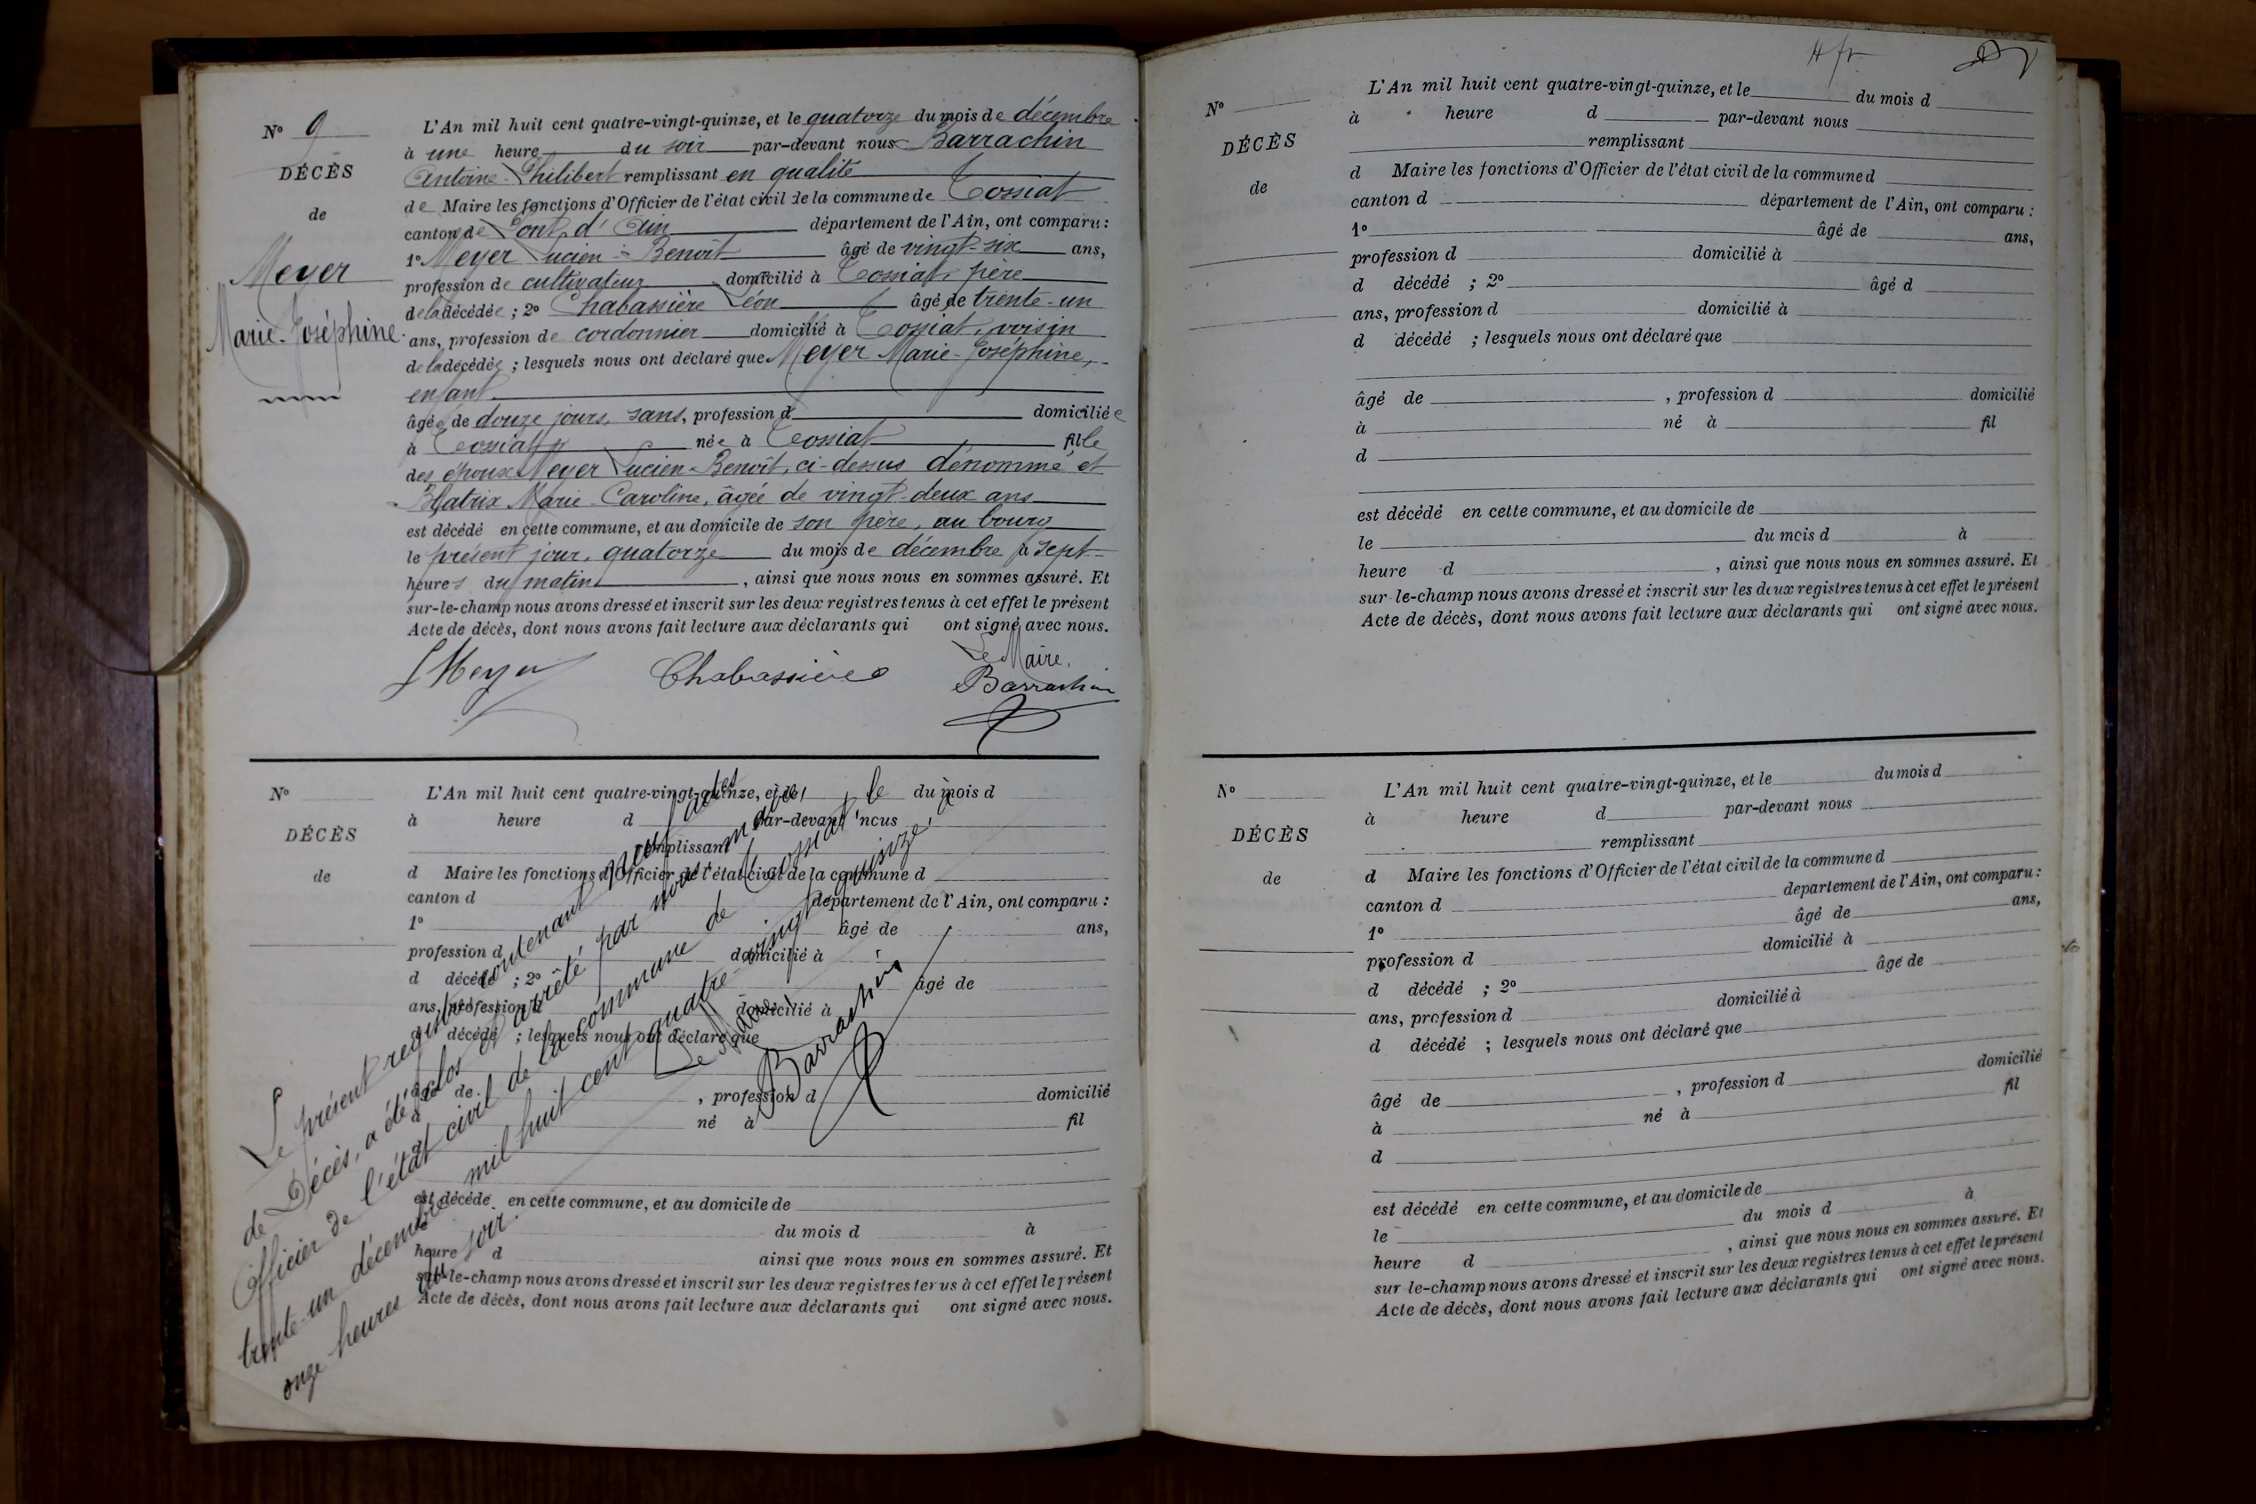 N° 9
DÉCÈS
de
Meyer
Marie-Joséphine
L'An mil huit cent quatre-vingt-quinze, et le quatorze du mois de décembre
à une heure du soir par-devant nous Barrachin
Antoine-Philibert remplissant en qualité
de Maire les fonctions d'Officier de l'état civil de la commune de Tossiat
canton de Pont d'Ain département de l'Ain, ont comparu :
1° Meyer Lucien-Benoît âgé de vingt-six ans,
profession de cultivateur domicilié à Tossiat, père
de la décédée ; 2° Chabassière Léon âgé de trente-un
ans, profession de cordonnier domicilié à Tossiat, voisin
de la décédée ; lesquels nous ont déclaré que Meyer Marie-Joséphine,
enfant
âgée de douze jours, sans, profession d domiciliée
à Tossiat née à Tossiat fille
des époux Meyer Lucien-Benoît, ci-dessus dénommé, et
Blatrix Marie-Caroline, âgée de vingt-deux ans
est décédé en cette commune, et au domicile de son père, au bourg
le présent jour, quatorze du mois de décembre à sept
heures du matin, ainsi que nous nous en sommes assuré. Et
sur-le-champ nous avons dressé et inscrit sur les deux registres tenus à cet effet le présent
Acte de décès, dont nous avons fait lecture aux déclarants qui ont signé avec nous.
LMeyer Chabassière Le Maire,
Barrachin
N°
DÉCÈS
de
L'An mil huit cent quatre-vingt-quinze, et le du mois d
à heure d par-devant nous
remplissant
d Maire les fonctions d'Officier de l'état civil de la commune d
canton d département de l'Ain, ont comparu :
1° âgé de ans,
profession d domicilié à
d décédé ; 2° âgé de
ans, profession d domicilié à
d décédé ; lesquels nous ont déclaré que
âgé de , profession d domicilié
à né à fil
d
est décédé en cette commune, et au domicile de
le du mois d à
heure d ainsi que nous nous en sommes assuré. Et
sur-le-champ nous avons dressé et inscrit sur les deux registres tenus à cet effet le présent
Acte de décès, dont nous avons fait lecture aux déclarants qui ont signé avec nous.
Le présent registre contenant neuf actes
de Décès, a été clos et arrêté par nous maire
Officier de l'état civil de la commune de Tossiat le
trente-un décembre mil huit cent quatre-vingt-quinze, à
onze heures du soir.
Le Maire,
Barrachin
4 fr.
N°
DÉCÈS
de
L'An mil huit cent quatre-vingt-quinze, et le du mois d
à heure d par-devant nous
remplissant
d Maire les fonctions d'Officier de l'état civil de la commune d
canton d département de l'Ain, ont comparu :
1° âgé de ans,
profession d domicilié à
d décédé ; 2° âgé d
ans, profession d domicilié à
d décédé ; lesquels nous ont déclaré que
âgé de , profession d domicilié
à né à fil
d
est décédé en cette commune, et au domicile de
le du mois d à
heure d , ainsi que nous nous en sommes assuré. Et
sur-le-champ nous avons dressé et inscrit sur les deux registres tenus à cet effet le présent
Acte de décès, dont nous avons fait lecture aux déclarants qui ont signé avec nous.
N°
DÉCÈS
de
L'An mil huit cent quatre-vingt-quinze, et le du mois d
à heure d par-devant nous
remplissant
d Maire les fonctions d'Officier de l'état civil de la commune d
canton d département de l'Ain, ont comparu :
1° âgé de ans,
profession d domicilié à
d décédé ; 2° âgé de
ans, profession d domicilié à
d décédé ; lesquels nous ont déclaré que
âgé de , profession d domicilié
à né à fil
d
est décédé en cette commune, et au domicile de
le du mois d à
heure d , ainsi que nous nous en sommes assuré. Et
sur-le-champ nous avons dressé et inscrit sur les deux registres tenus à cet effet le présent
Acte de décès, dont nous avons fait lecture aux déclarants qui ont signé avec nous.